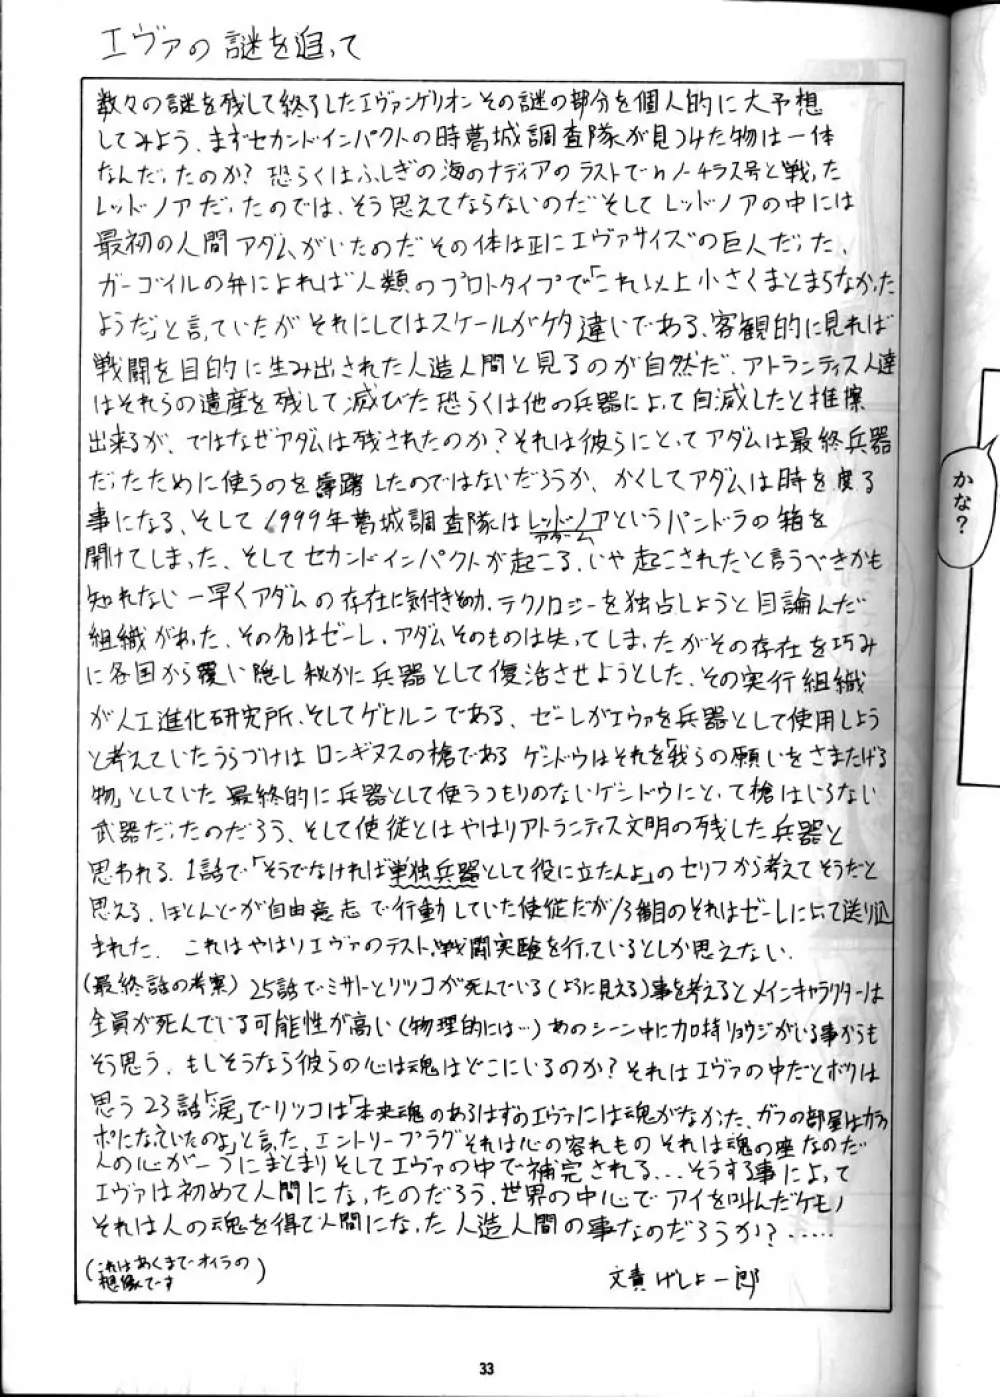 エヴァの謎を追って
数々の謎を残して終了したエヴァンゲリオンその謎の部分を個人的に大予想
してみよう、まずセカンドインパクトの時葛城調査隊が見つけた物は一体
なんだったのか?恐らくはふしぎの海のナディアのラストでnノーチラス号と戦った
レッドノアだったのでは、そう思えてならないのだそしてレッドノアの中には
最初の人間アダムがいたのだその体は正にエヴァサイズの巨人だった、
ガーゴイルの弁によれば人類のプロトタイプで「これ以上小さくまとまらなかった
ようだ」と言っていたがそれにしてはスケールがケタ違いである、客観的に見れば
戦闘を目的に生み出された人造人間と見るのが自然だ.アトランティス人達
はそれらの遺産を残して滅びた恐らくは他の兵器によって自滅したと推察
出来るが、ではなぜアダムは残されたのか?それは彼らにとってアダムは最終兵器
だったために使うのを躊躇したのではないだろうか、かくしてアダムは時を度る
事になる、そして1999年葛城調査隊はレッドノアというパンドラの箱を
アダム
開けてしまった、そしてセカンドインパクトが起こる、いや起こされたと言うべきかも
知れない一早くアダムの存在に気付き テクノロジーを独占しようと目論んだ
組織があった、その名はゼーレ.アダムそのものは失ってしまったがその存在を巧み
に各国から覆い隠し秘かに兵器として復活させようとした、その実行組織
が人工進化研究所、そしてゲヒルンである、ゼーレがエヴァを兵器として使用しよう
と考えていたうらづけはロンギヌスの槍である ゲンドウはそれを「我らの願いをさまたげる
物」としていた 最終的に兵器として使うつもりのないゲンドウにとって槍はいらない
武器だったのだろう、そして使徒とはやはりアトランティス文明の残した兵器と
思われる.1話で「そうでなければ単独兵器として役に立たんよ」のセリフから考えてそうだと
思える.ほとんどが自由意志で行動していた使徒だが13番目のそれはゼーレによって送り込
まれた.これはやはりエヴァのテスト、戦闘実験を行っているとしか思えない.
(最終話の考案)25話でミサトとリツコが死んでいる(ように見える)事を考えるとメインキャラクターは
全員が死んでいる可能性が高い(物理的には…)あのシーン中に加持リョウジがいる事からも
そう思う.もしそうなら彼らの心は魂はどこにいるのか?それはエヴァの中だとボクは
思う23話「涙」でリツコは「本来魂のあるはずのエヴァには魂がなかった、ガフの部屋はカラッ
ポになっていたのよ」と言った、エントリープラグそれは心の容れもの それは魂の座なのだ
人の心が一つにまとまりそしてエヴァの中で補完される...そうする事によって
エヴァは初めて人間になったのだろう.世界の中心でアイを叫んだケモノ
それは人の魂を得て人間になった人造人間の事なのだろうか?.....
(これはあくまでオイラの
想像です)
文責 げしょ一郎
33
かな?